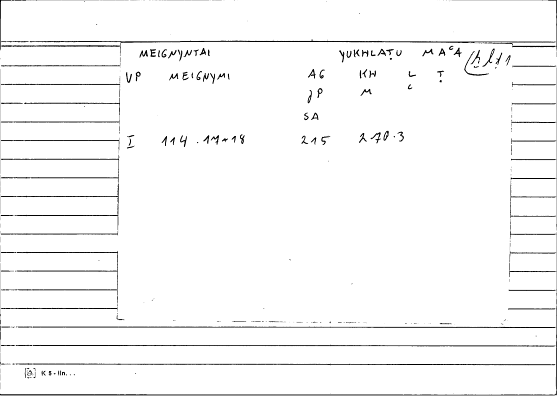 MEIGNYNTAI YUKHLAṬU MAᶜA ḫlṭ1
VP MEIGNYMI AG KH L Ṭ
JP M c
SA
I 114.17-18 215 270.3
K 5 - lin...